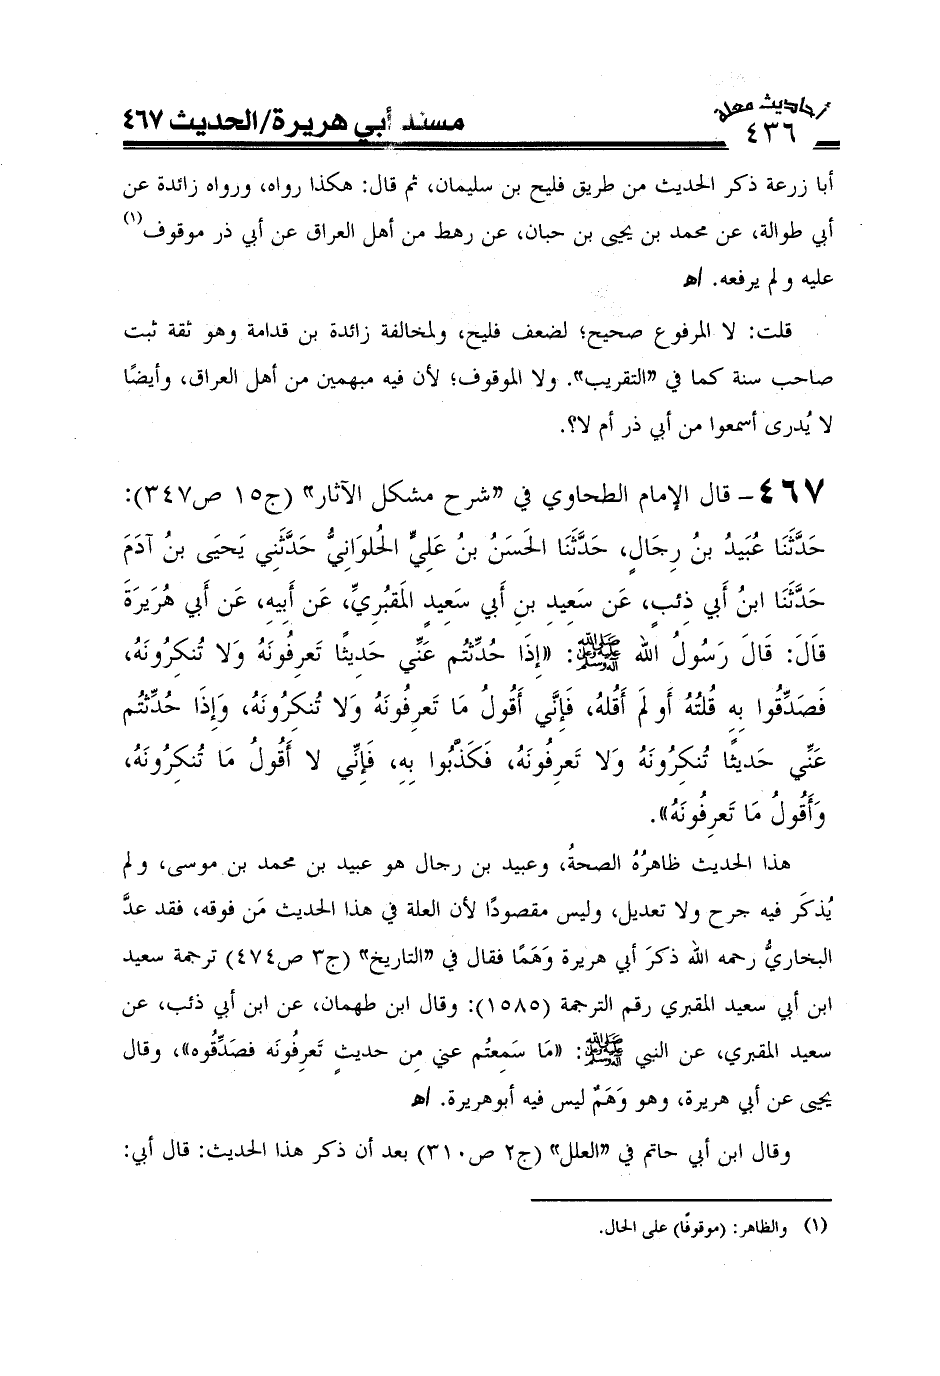 أحاديث معلة
٤٣٦
مسند أبي هريرة/الحديث ٤٦٧
أبا زرعة ذكر الحديث من طريق فليح بن سليمان، ثم قال: هكذا رواه، ورواه زائدة عن
أبي طوالة، عن محمد بن يحيى بن حبان، عن رهط من أهل العراق عن أبي ذر موقوف(١)
عليه ولم يرفعه. اﻫ
قلت: لا المرفوع صحيح؛ لضعف فليح، ولمخالفة زائدة بن قدامة وهو ثقة ثبت
صاحب سنة كما في «التقريب». ولا الموقوف؛ لأن فيه مبهمين من أهل العراق، وأيضًا
لا يُدرى أسمعوا من أبي ذر أم لا؟.
٤٦٧- قال الإمام الطحاوي في «شرح مشكل الآثار» (ج١٥ ص٣٤٧):
حَدَّثَنَا عُبَيدُ بنُ رِجَالٍ، حَدَّثَنَا الحَسَنُ بنُ عَلِيٍّ الحُلوَانِيُّ حَدَّثَنِي يَحيَى بنُ آدَمَ
حَدَّثَنَا ابنُ أَبِي ذئبٍ، عَن سَعِيدِ بنِ أَبِي سَعِيدٍ المَقبُرِيِّ، عَن أَبِيهِ، عَن أَبِي هُرَيرَةَ
قَالَ: قَالَ رَسُولُ الله ﷺ: «إِذَا حُدِّثتُم عَنِّي حَدِيثًا تَعرِفُونَهُ وَلَا تُنكِرُونَهُ،
فَصَدِّقُوا بِهِ قُلتُهُ أَو لَم أَقُلهُ، فَإِنَّي أَقُولُ مَا تَعرِفُونَهُ وَلَا تُنكِرُونَهُ، وَإِذَا حُدِّثتُم
عَنِّي حَدِيثًا تُنكِرُونَهُ وَلَا تَعرِفُونَهُ، فَكَذِّبُوا بِهِ، فَإِنِّي لا أَقُولُ مَا تُنكِرُونَهُ،
وَأَقُولُ مَا تَعرِفُونَهُ».
هذا الحديث ظاهرُهُ الصحةُ، وعبيد بن رجال هو عبيد بن محمد بن موسى، ولم
يُذكَر فيه جرح ولا تعديل، وليس مقصودًا لأن العلة في هذا الحديث مَن فوقه، فقد عدَّ
البخاريُّ رحمه الله ذكرَ أبي هريرة وَهَمًا فقال في «التاريخ» (ج٣ ص٤٧٤) ترجمة سعيد
ابن أبي سعيد المقبري رقم الترجمة (١٥٨٥): وقال ابن طهمان، عن ابن أبي ذئب، عن
سعيد المقبري، عن النبي ﷺ: «مَا سَمِعتُم عني مِن حديثٍ تَعرِفُونَه فصَدِّقُوه»، وقال
يحيى عن أبي هريرة، وهو وَهَمٌ ليس فيه أبوهريرة. اﻫ
وقال ابن أبي حاتم في «العلل» (ج٢ ص٣١٠) بعد أن ذكر هذا الحديث: قال أبي:
(١) والظاهر: (موقوفًا) على الحال.